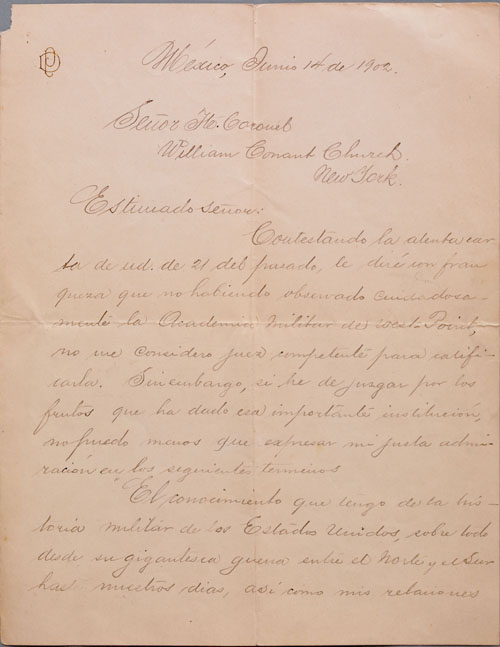 México, Junio 14 de 1902.
Señor Tte. Coronel
William Conant Church.
New York.
Estimado señor:
Contestando la atenta car-
ta de ud. de 21 del pasado, le diré con fran
queza que no habiendo observado cuidadosa-
mente la Academia Militar de West-Point,
no me considero juez competente para calific
carla. Sin embargo, si he de juzgar por los
frutos que ha dado esa importante institución,
no puedo menos que expresar mi justa admi-
ración en los siguientes términos
El conocimiento que tengo de la his-
toria militar de los Estados Unidos, sobre todo
desde su gigantesca guerra entre el Norte y el Sur
hasta nuestros días, así como mis relaciones